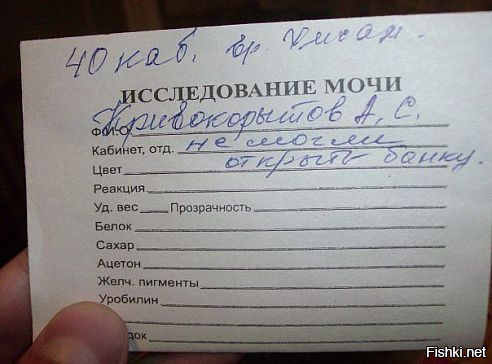 40 каб. вр.
ИССЛЕДОВАНИЕ МОЧИ
Ф.И.О. Кривокорытов А. С.
Кабинет, отд. не могли
Цвет открыть банку.
Реакция
Уд. вес Прозрачность
Белок
Сахар
Ацетон
Желч. пигменты
Уробилин
Fishki.net